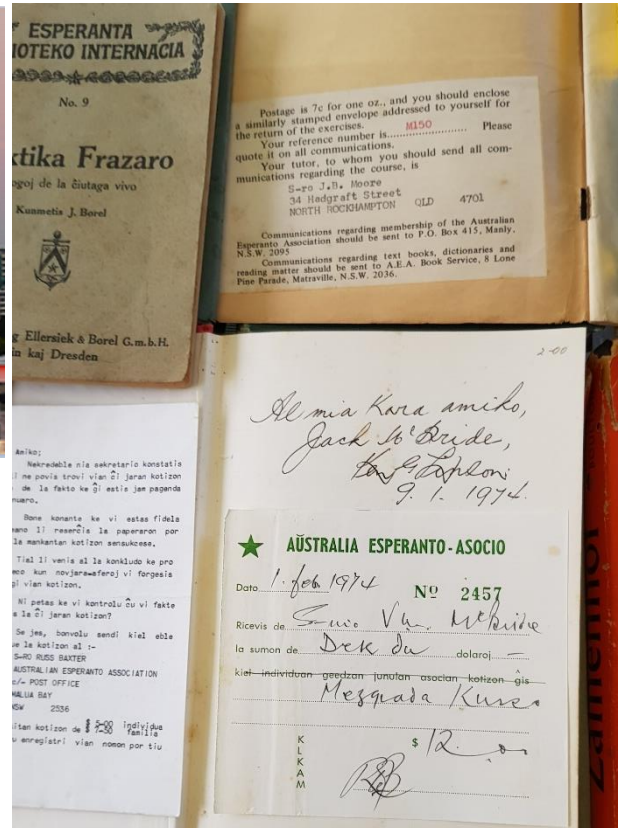 ESPERANTA
IOTEKO INTERNACIA
No. 9
ktika Frazaro
ogoj de la ĉiutaga vivo
Kunmetis J. Borel
g Ellersiek & Borel G.m.b.H.
in kaj Dresden
Postage is 7c for one oz., and you should enclose
a similarly stamped envelope addressed to yourself for
the return of the exercises.
Your reference number is M150 Please
quote it on all communications.
Your tutor, to whom you should send all com-
munications regarding the course, is
S-ro J.B. Moore
34 Hadgraft Street
NORTH ROCKHAMPTON QLD 4701
Communications regarding membership of the Australian
Esperanto Association should be sent to P.O. Box 415, Manly,
N.S.W. 2095
Communications regarding text books, dictionaries and
reading matter should be sent to A.E.A. Book Service, 8 Lone
Pine Parade, Matraville, N.S.W. 2036.
2-00
Al mia kara amiko,
Jack McBride,
9.1.1974.
Amiko;
Nekredeble nia sekretario konstatis
i ne povis trovi vian ĉi jaran kotizon
de la fakto ke ĝi estis jam paganda
nuaro.
Bone konante ke vi estas fidela
ano li reserĉis la paperaron por
la mankantan kotizon sensukcese.
Tial li venis al la konkludo ke pro
meco kun novjara-aferoj vi forgesis
gi vian kotizon.
Ni petas ke vi kontrolu ĉu vi fakte
s la ĉi jaran kotizon?
Se jes, bonvolu sendi kiel eble
e la kotizon al :-
S-RO RUSS BAXTER
AUSTRALIAN ESPERANTO ASSOCIATION
c/- POST OFFICE
MALUA BAY
NSW 2536
itan kotizon de $ 5-00 individua
$ 7-50 familia
u enregistri vian nomon por tiu
AŬSTRALIA ESPERANTO-ASOCIO
Dato 1. feb 1974 Nº 2457
Ricevis de S-uio Vm. McBride
la sumon de Dek du dolaroj —
kiel individuan geedzan junulan asocian kotizon ĝis
Mezgrada Kurso
KLKAM
$ 12.00
Zamenhof